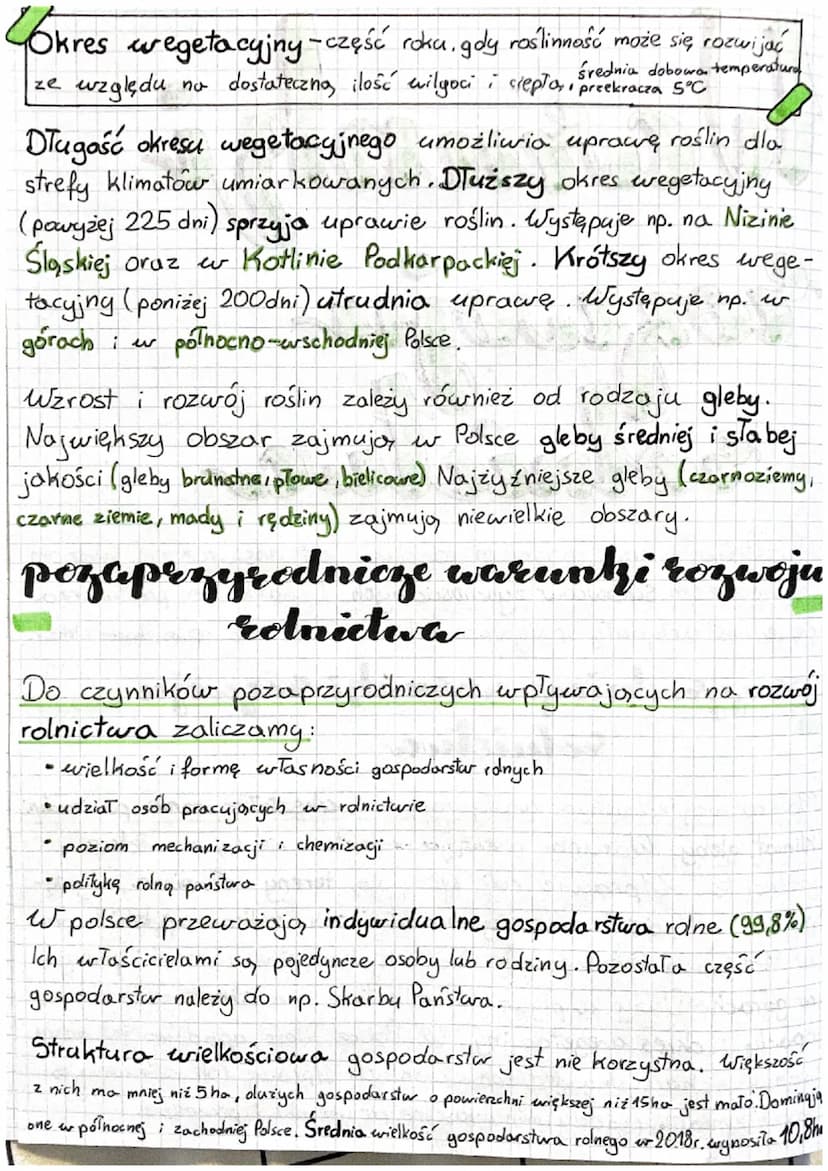 Okres wegetacyjny - część roku, gdy roślinność może się rozwijać
ze względu na dostateczną ilość wilgoci i ciepła, średnia dobowa temperatura
przekracza 5°C
Długość okresu wegetacyjnego umożliwia uprawę roślin dla
strefy klimatów umiarkowanych. Dłuższy okres wegetacyjny
(powyżej 225 dni) sprzyja uprawie roślin. Występuje np. na Nizinie
Śląskiej oraz w Kotlinie Podkarpackiej. Krótszy okres wege-
tacyjny (poniżej 200dni) utrudnia uprawę. Występuje np. w
górach i w północno-wschodniej Polsce.
Wzrost i rozwój roślin zależy również od rodzaju gleby.
Największy obszar zajmują w Polsce gleby średniej i słabej
jakości (gleby brunatne, płowe, bielicowe) Najżyźniejsze gleby (czarnoziemy,
czarne ziemie, mady i rędziny) zajmują niewielkie obszary.
pozaprzyrodnicze warunki rozwoju
rolnictwa
Do czynników pozaprzyrodniczych wpływających na rozwój
rolnictwa zaliczamy:
• wielkość i formę własności gospodarstw rolnych
• udział osób pracujących w rolnictwie
• poziom mechanizacji i chemizacji
• politykę rolną państwa
W polsce przeważają indywidualne gospodarstwa rolne (99,8%)
Ich właścicielami są pojedyncze osoby lub rodziny. Pozostała część
gospodarstw należy do np. Skarbu Państwa.
Struktura wielkościowa gospodarstw jest nie korzystna. Większość
z nich ma mniej niż 5 ha, dużych gospodarstw o powierzchni większej niż 15ha jest mało. Dominują
one w północnej i zachodniej Polsce. Średnia wielkość gospodarstwa rolnego w 2018r. wynosiła 10,8ha